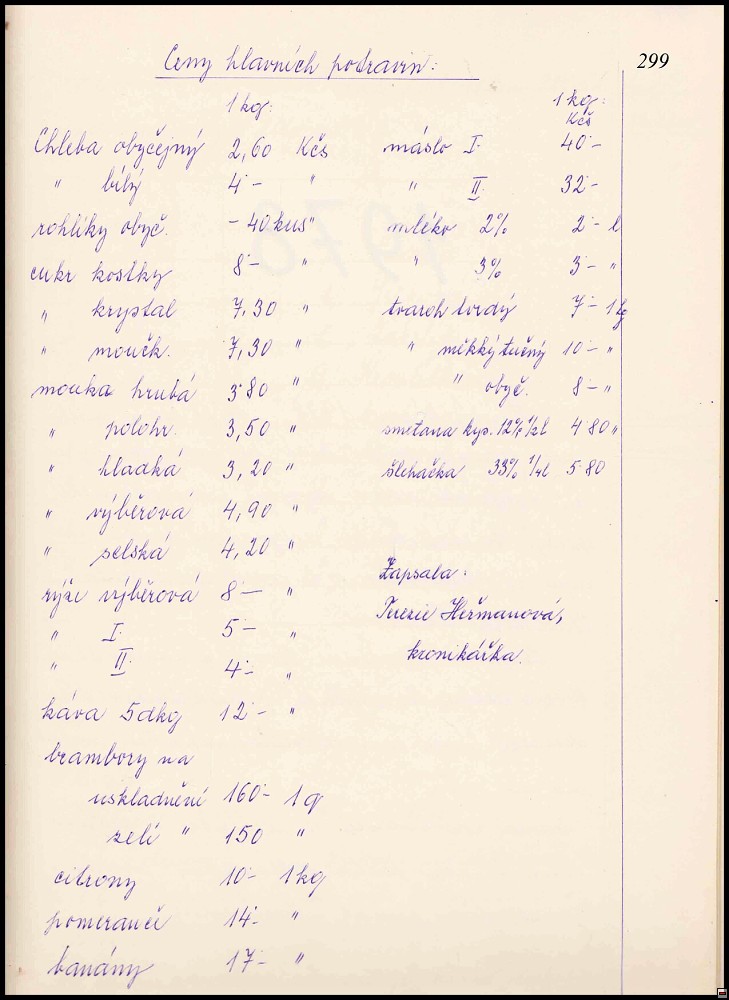 Ceny hlavních potravin:
299
1 kg:
Chleba obyčejný 2,60 Kčs
" bílý 4·- "
rohlíky obyč. -40 kus "
cukr kostky 8·- "
" krystal 7,30 "
" moučk. 7,30 "
mouka hrubá 3·80 "
" polohr. 3,50 "
" hladká 3,20 "
" výběrová 4,90 "
" selská 4,20 "
rýže výběrová 8·- "
" I. 5·- "
" II. 4·- "
káva 5dkg 12·- "
brambory na
uskladnění 160·- 1 q
zelí " 150 "
citrony 10·- 1 kg
pomeranče 14·- "
banány 17·- "
1 kg:
Kčs
máslo I. 40·-
" II. 32·-
mléko 2% 2·- l
" 3% 3·- "
tvaroh tvrdý 7·- 1 kg
" měkký tučný 10·- "
" obyč. 8·- "
smetana kys. 12% 1/2 l 4·80 "
šlehačka 33% 1/4 l 5·80
Zapsala:
Terezie Heřmanová,
kronikářka.